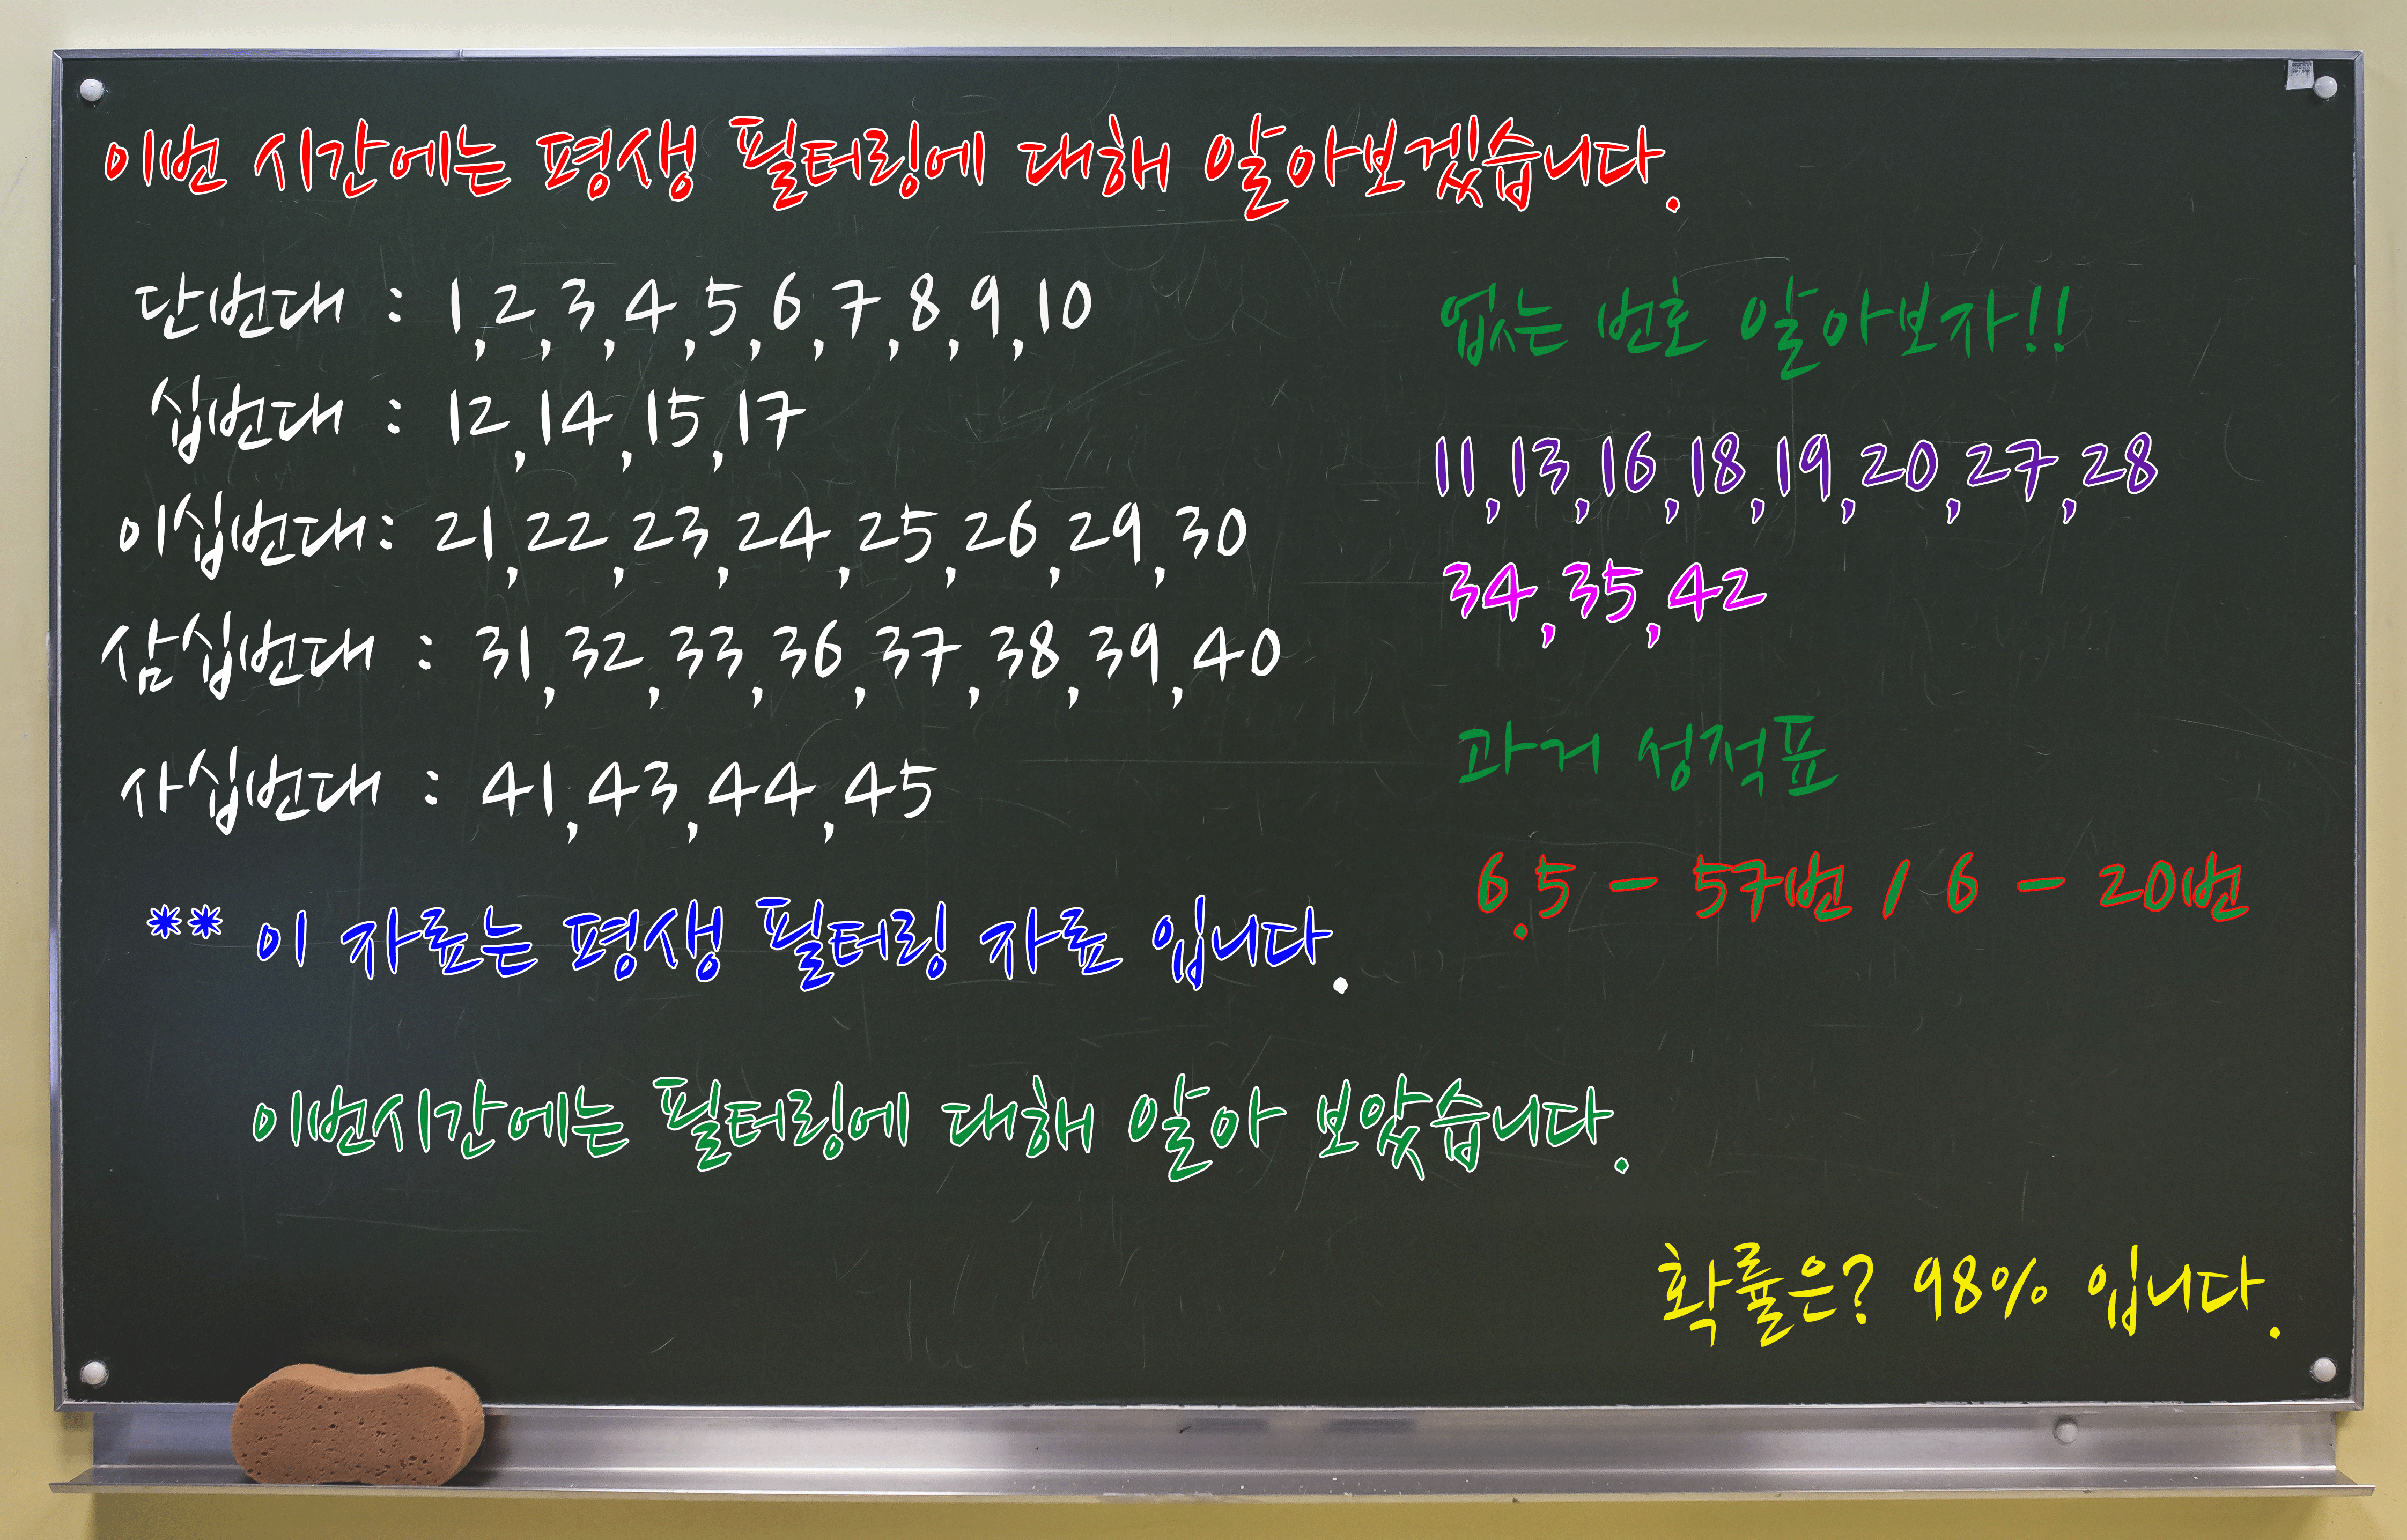 이번 시간에는 평생 필터링에 대해 알아보겠습니다.
단번대 : 1,2,3,4,5,6,7,8,9,10
십번대 : 12,14,15,17
이십번대: 21,22,23,24,25,26,29,30
삼십번대 : 31,32,33,36,37,38,39,40
사십번대 : 41,43,44,45
** 이 자료는 평생 필터링 자료 입니다.
없는 번호 알아보자!!
11,13,16,18,19,20,27,28
34,35,42
과거 성적표
6.5 - 57번 / 6 - 20번
이번시간에는 필터링에 대해 알아 보았습니다.
확률은? 98% 입니다.